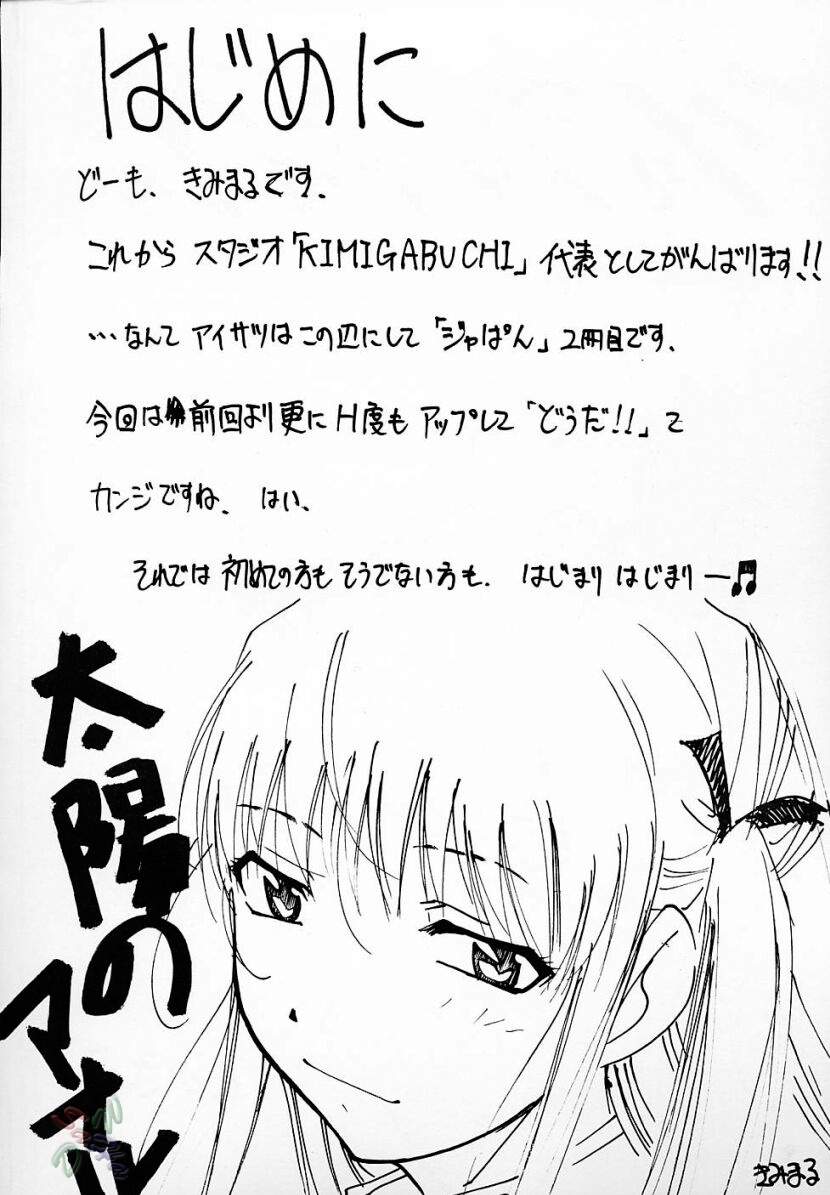 はじめに
どーも、きみまるです.
これから スタジオ「KIMIGABUCHI」代表としてがんばります!!
…なんて アイサツはこの辺にして「ジャぱん」2冊目です.
今回は前回より更に H度も アップして「どうだ!!」て
カンジですね. はい.
それでは 初めての方も そうでない方も. はじまり はじまりー♫
太陽の
マオル
きみまる